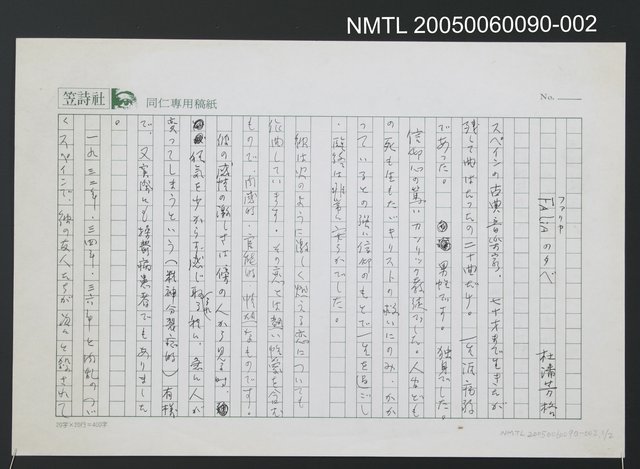 NMTL 20050060090-002
笠詩社
同仁専用稿紙
No.
ファリヤ
Fallaの夕べ
杜潘芳格
スペインの古典音楽家、七十才まで生きたが
残して曲はたったの二十曲だけ。一生涯病弱
であった。男性です。独身でした。
信仰心の篤いカソリック教徒でした。人生ども
の死も生もただキリストの救いにのみ、かか
っているとの強い信仰のもとで一生を過ごし
、臨終は非常に安らかでした。
彼は次のように激しく燃える恋についても
作曲しています。その恋とは熱い性愛を含む
もので、肉感的、官能的、情熱なものです。
彼の感情の激しさは傍の人から見る時、
怪気を少からず感じ取る程に、悪い人が
変ってしまうという(精神分裂症的)有様
で、又実際にも精鬱病患者でもありました
。
一九三二年、三四年、三六年と内乱のつづ
くスペインで、彼の友人たちが次々と殺されて
20字×20行=400字
NMTL 20050060090-002 1/2